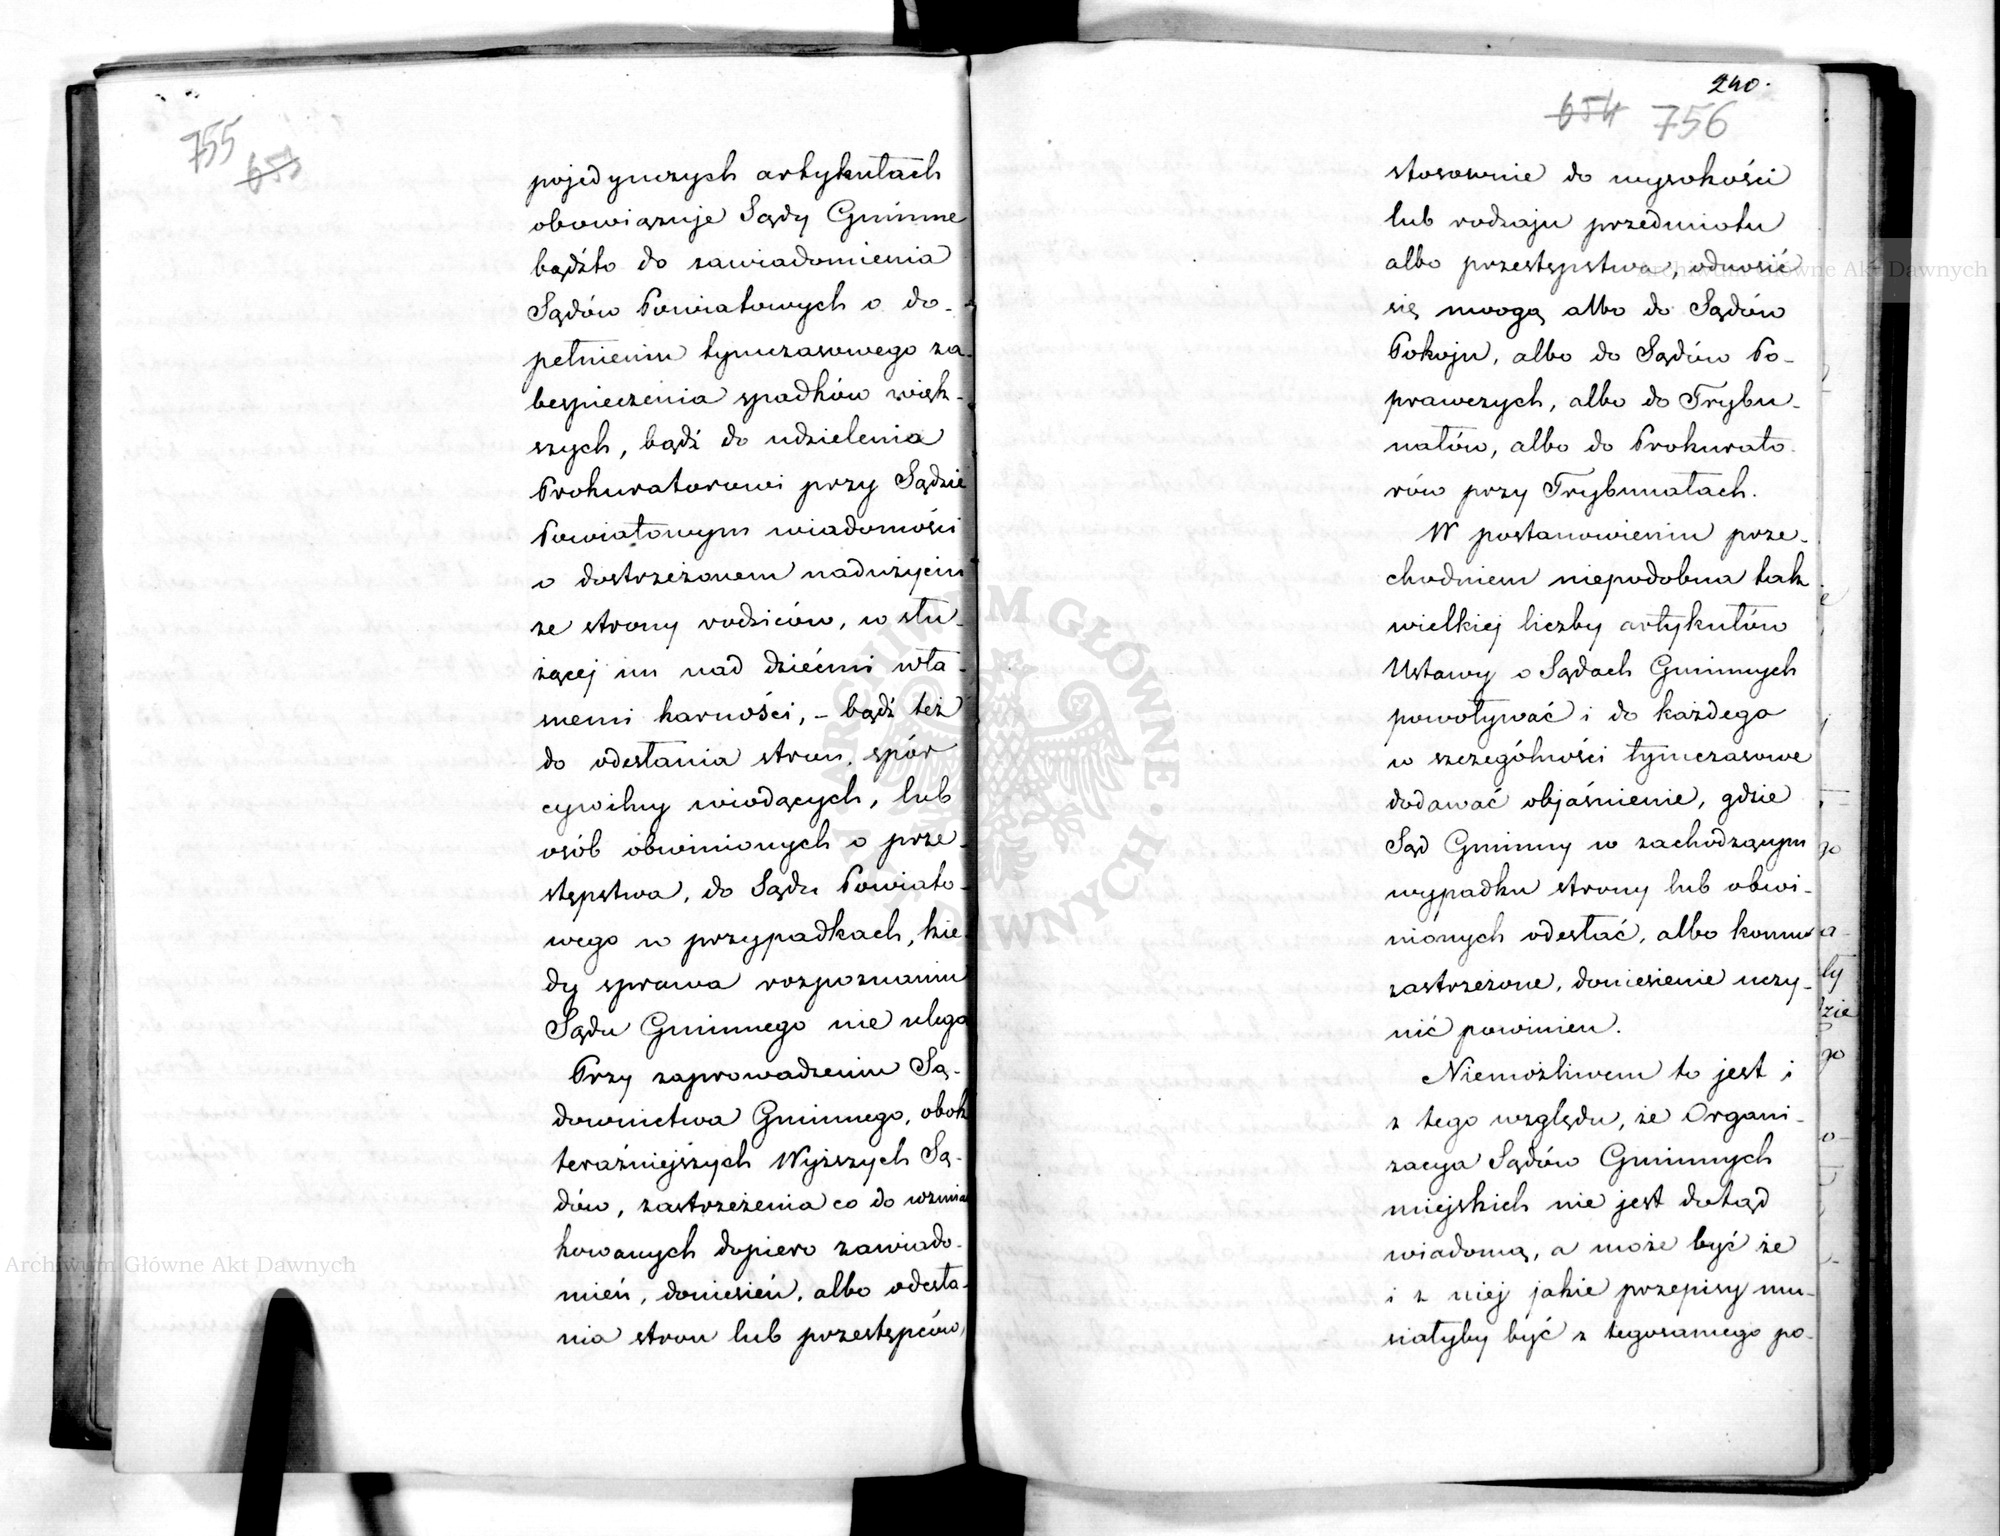 755
653
pojedynczych artykułach
obowiązuje Sądy Gminne
bądźto do zawiadomienia
Sądów Powiatowych o do-
pełnieniu tymczasowego za-
bespieczenia spadków więk-
szych, bądź do udzielenia
Prokuratorowi przy Sądzie
Powiatowym wiadomości
o dostrzeżonem nadużyciu
ze strony rodziców, w słu-
żącej im nad dziećmi wła-
snemi karności, - bądź też
do odesłania stron, spór
cywilny wiodących, lub
osób obwinionych o prze-
stępstwa, do Sądu Powiato-
wego w przypadkach, kie-
dy sprawa rozpoznaniu
Sądu Gminnego nie ulega
Przy zaprowadzeniu Są-
downictwa Gminnego, obok
teraźniejszych Wyższych Są-
dów, zastrzeżenia co do wzmian
kowanych dopiero zawiado-
mień, doniesień, albo odesła-
nia stron lub przestępców,
240.
654 756
stosownie do wysokości
lub rodzaju przedmiotu
albo przestępstwa, odnosić
się mogą albo do Sądów
Pokoju, albo do Sądów Po-
prawczych, albo do Trybu-
nałów, albo do Prokurato-
rów przy Trybunałach.
W postanowieniu prze-
chodniem niepodobna tak
wielkiej liczby artykułów
Ustawy o Sądach Gminnych
powoływać i do każdego
w szczególności tymczasowe
dodawać objaśnienie, gdzie
Sąd Gminny w zachodzącym
wypadku strony lub obwi-
nionych odesłać, albo komu
zastrzeżone, doniesienie uczy-
nić powinien.
Niemożliwem to jest i
z tego względu, że Organi-
zacya Sądów Gminnych
miejskich nie jest dotąd
wiadomą, a może być że
i z niej jakie przepisy mu-
siałyby być z tegosamego po-
Archiwum Główne Akt Dawnych
Archiwum Główne Akt Dawnych
ARCHIWUM GŁÓWNE AKT DAWNYCH